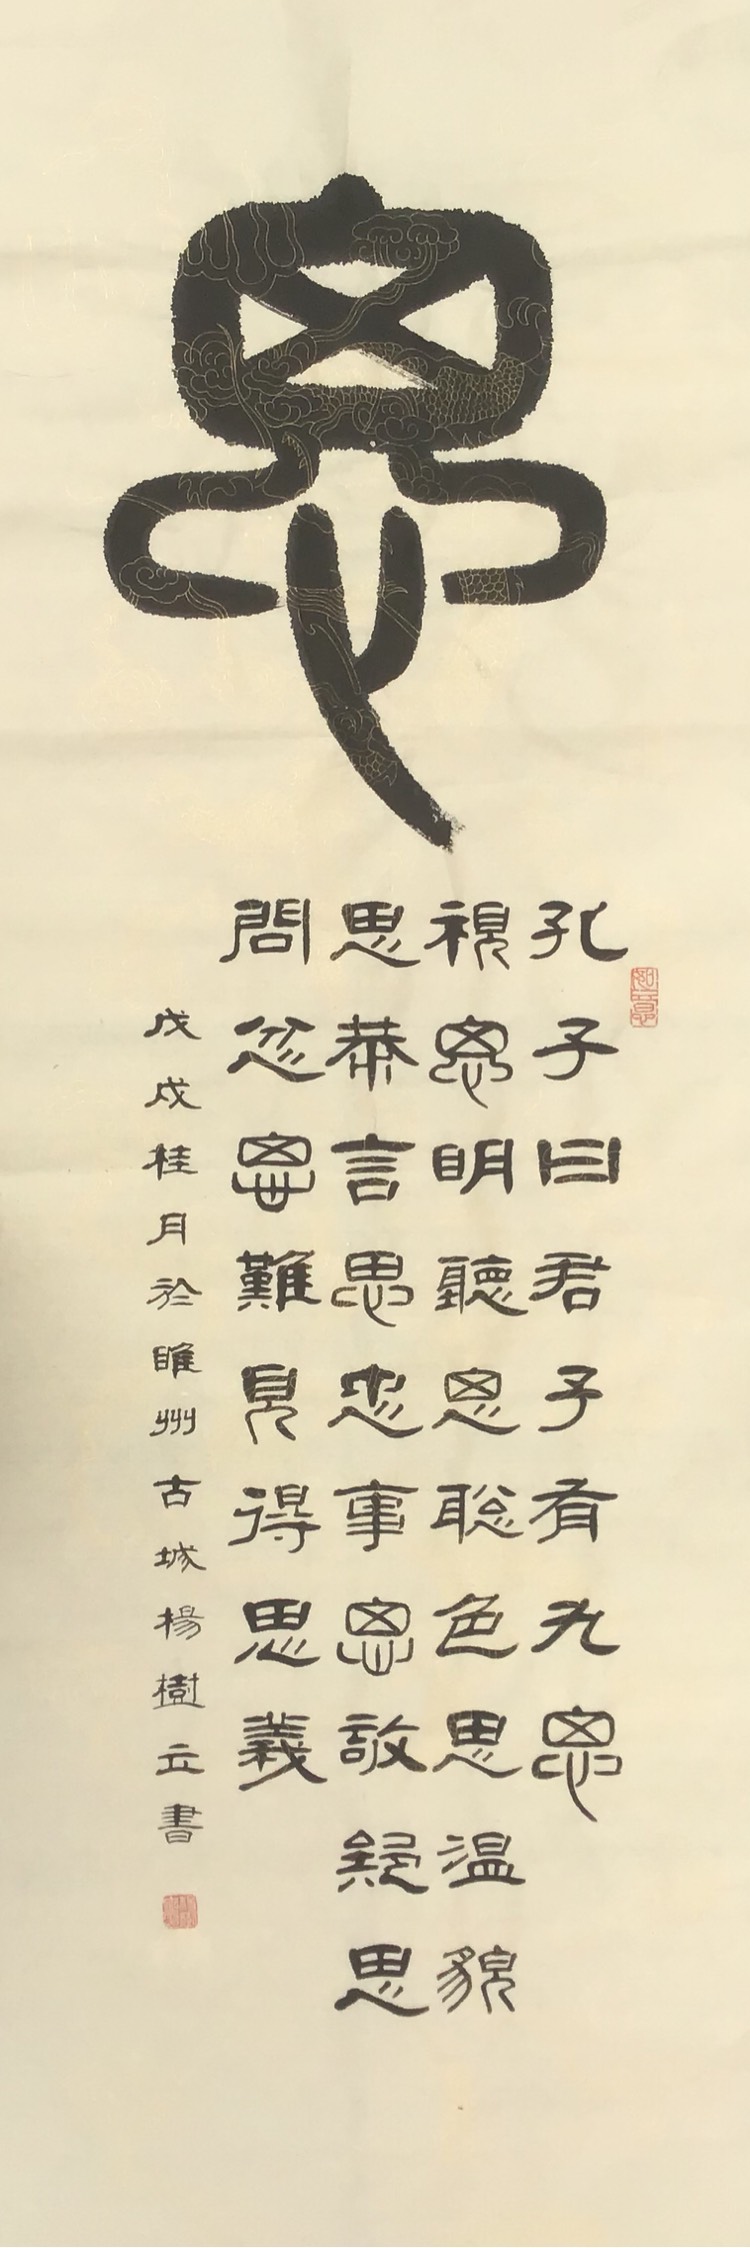 思
孔子曰君子有九思
視思明聽思聪色思温貌
思恭言思忠事思敬疑思
問忿思難見得思義
戊戌桂月於睢州古城楊樹立書
如意